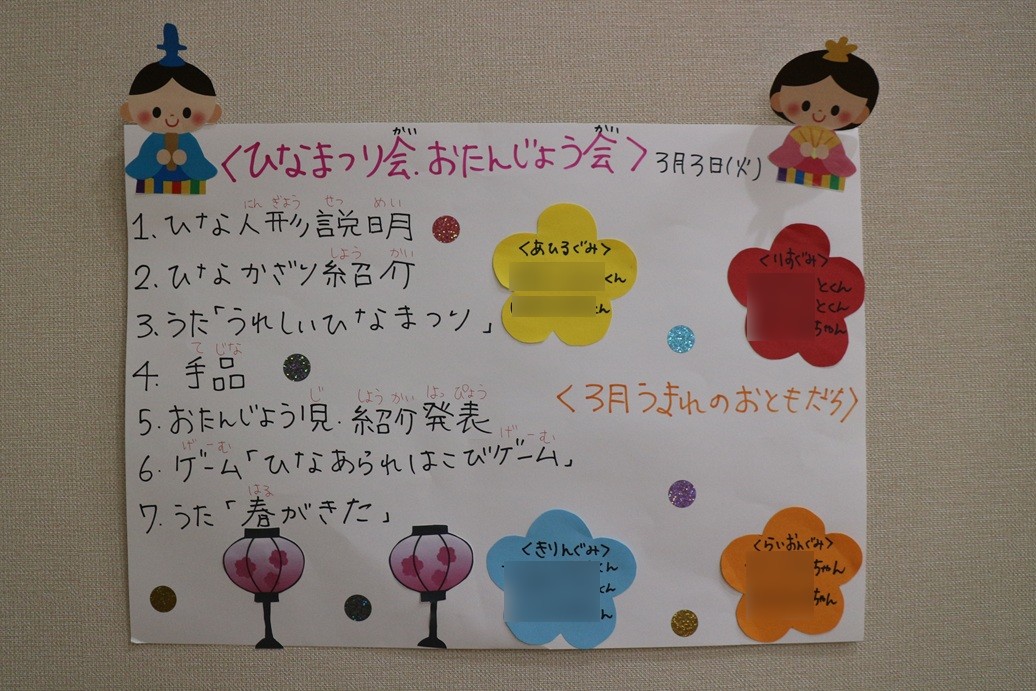 <ひなまつり会.おたんじょう会>3月3日(火)
がい がい
1.ひな人形説明
にん ぎょう せつ めい
2.ひなかざり紹介
しょう かい
3.うた「うれしいひなまつり」
4.手品
て じな
5.おたんじょう児.紹介発表
じ しょう かい はっ ぴょう
6.ゲーム「ひなあられはこびゲーム」
げーむ げーむ
7.うた「春がきた」
はる
<あひるぐみ>
くん
<りすぐみ>
とくん
とくん
ちゃん
<3月うまれのおともだち>
<きりんぐみ>
<らいおんぐみ>
ちゃん
ちゃん